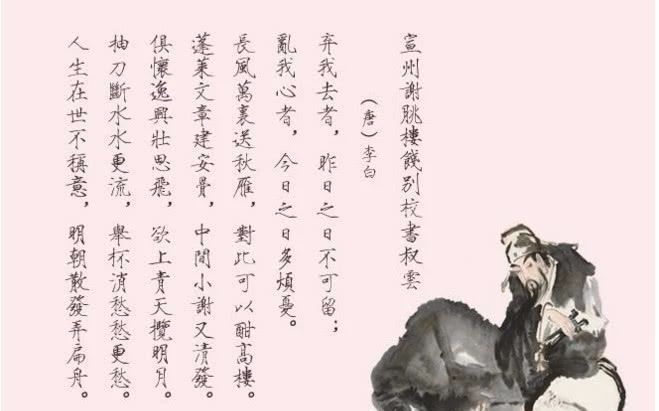 宣州謝朓樓餞別校書叔雲
（唐）李白
弃我去者，昨日之日不可留；
亂我心者，今日之日多煩憂。
長風萬裏送秋雁，對此可以酣高樓。
蓬萊文章建安骨，中間小謝又清發。
俱懷逸興壯思飛，欲上青天攬明月。
抽刀斷水水更流，舉杯消愁愁更愁。
人生在世不稱意，明朝散發弄扁舟。